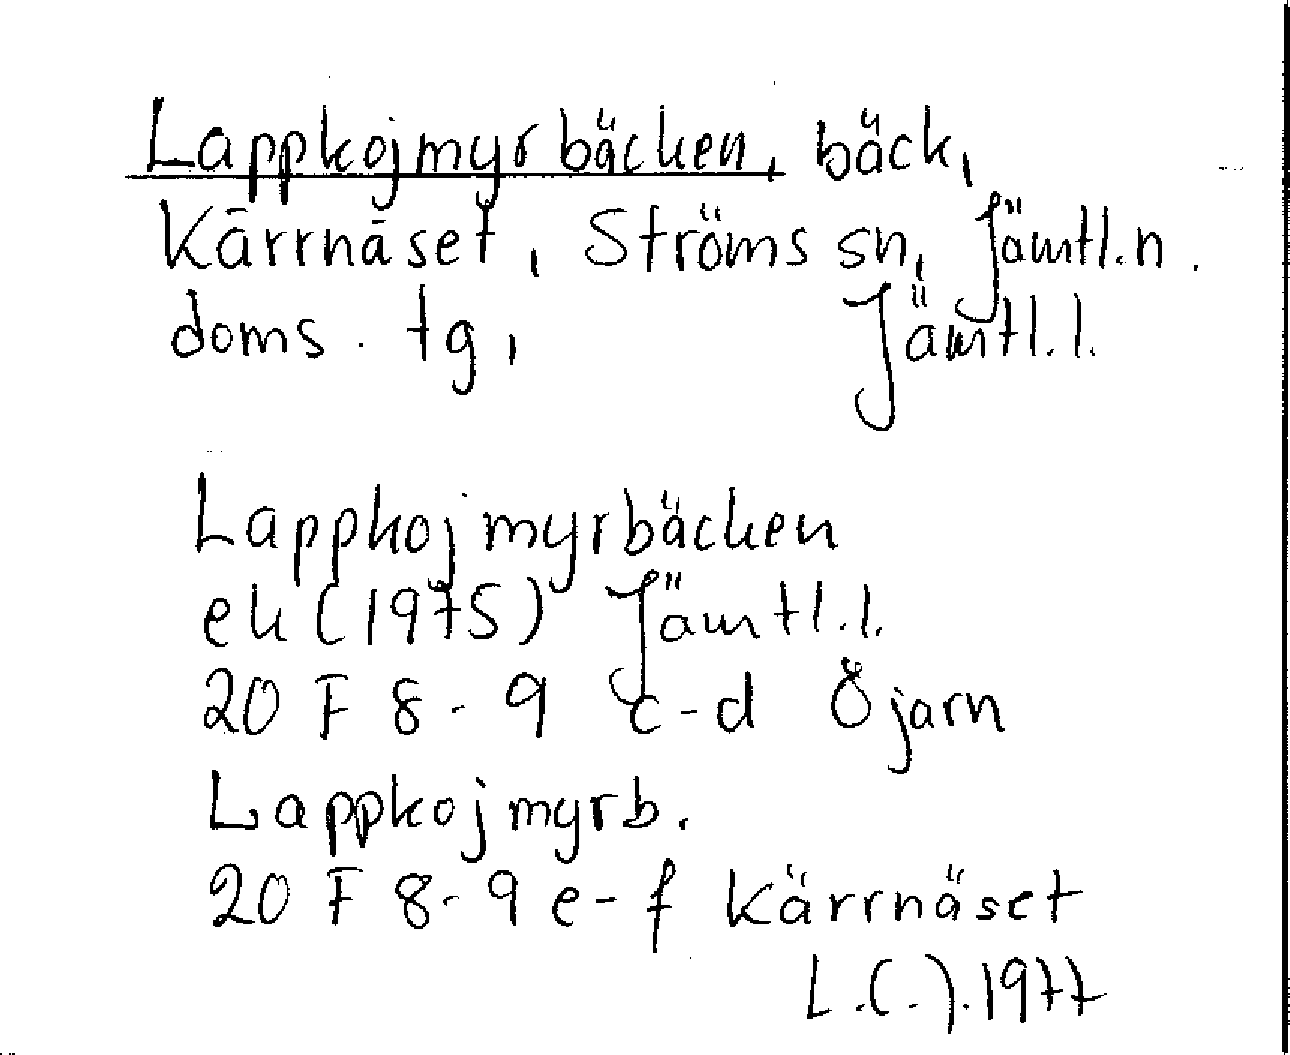 Lappkojmyrbäcken, bäck,
Kärrnäset, Ströms sn, Jämtl.n.
doms. tg, Jämtl.l.
Lappkojmyrbäcken
ek (1975) Jämtl.l.
20 F 8-9 c-d Öjarn
Lappkojmyrb.
20 F 8-9 e-f Kärrnäset
L.(-).1977